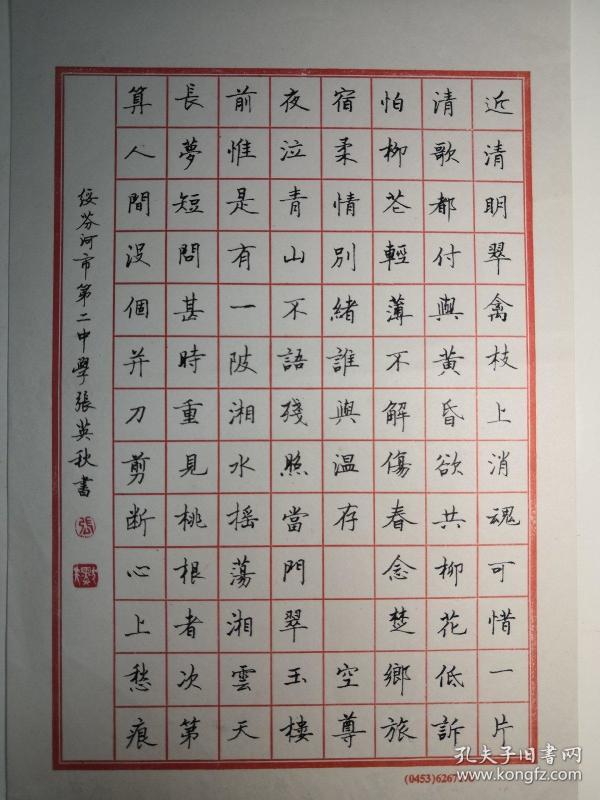 近清明翠禽枝上消魂可惜一片
清歌都付與黄昏欲共柳花低訴
怕柳芲輕薄不解傷春念楚鄉旅
宿柔情別緒誰與温存　　空尊
夜泣青山不語殘照當門翠玉樓
前惟是有一陂湘水摇蕩湘雲天
長夢短問甚時重見桃根者次第
算人間沒個并刀剪断心上愁痕
綏芬河市第二中學張英秋書
張
(0453)6267
孔夫子旧书网
www.kongfz.com